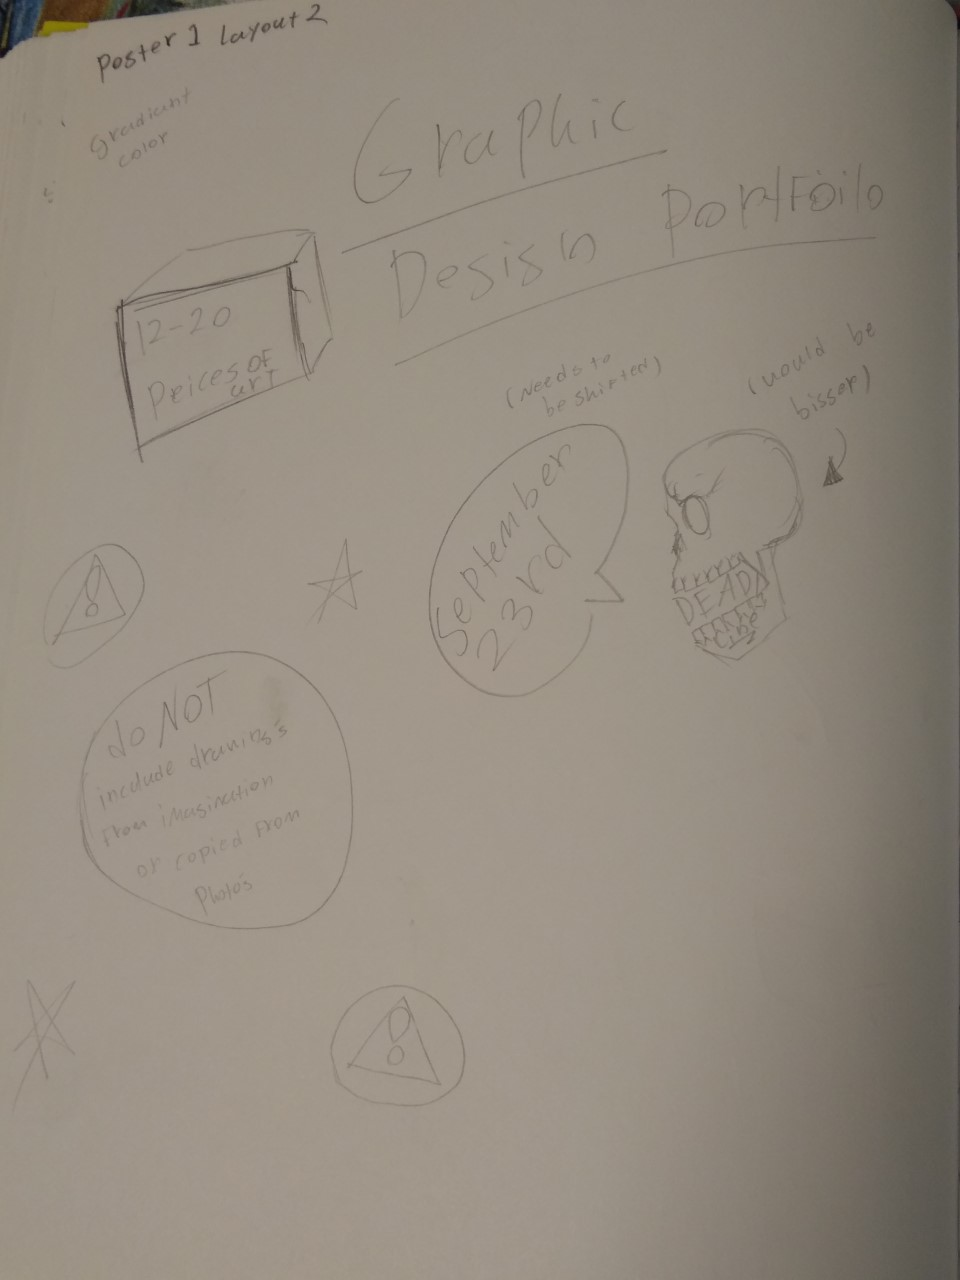 Poster 1 layout 2
gradiant
color
Graphic
Design Portfoilo
12-20
Peices OF
art
(Needs to
be shifted)
(would be
bigger)
September
23rd
DEAD
line
do NOT
include drawing's
from imagination
or copied from
Photo's